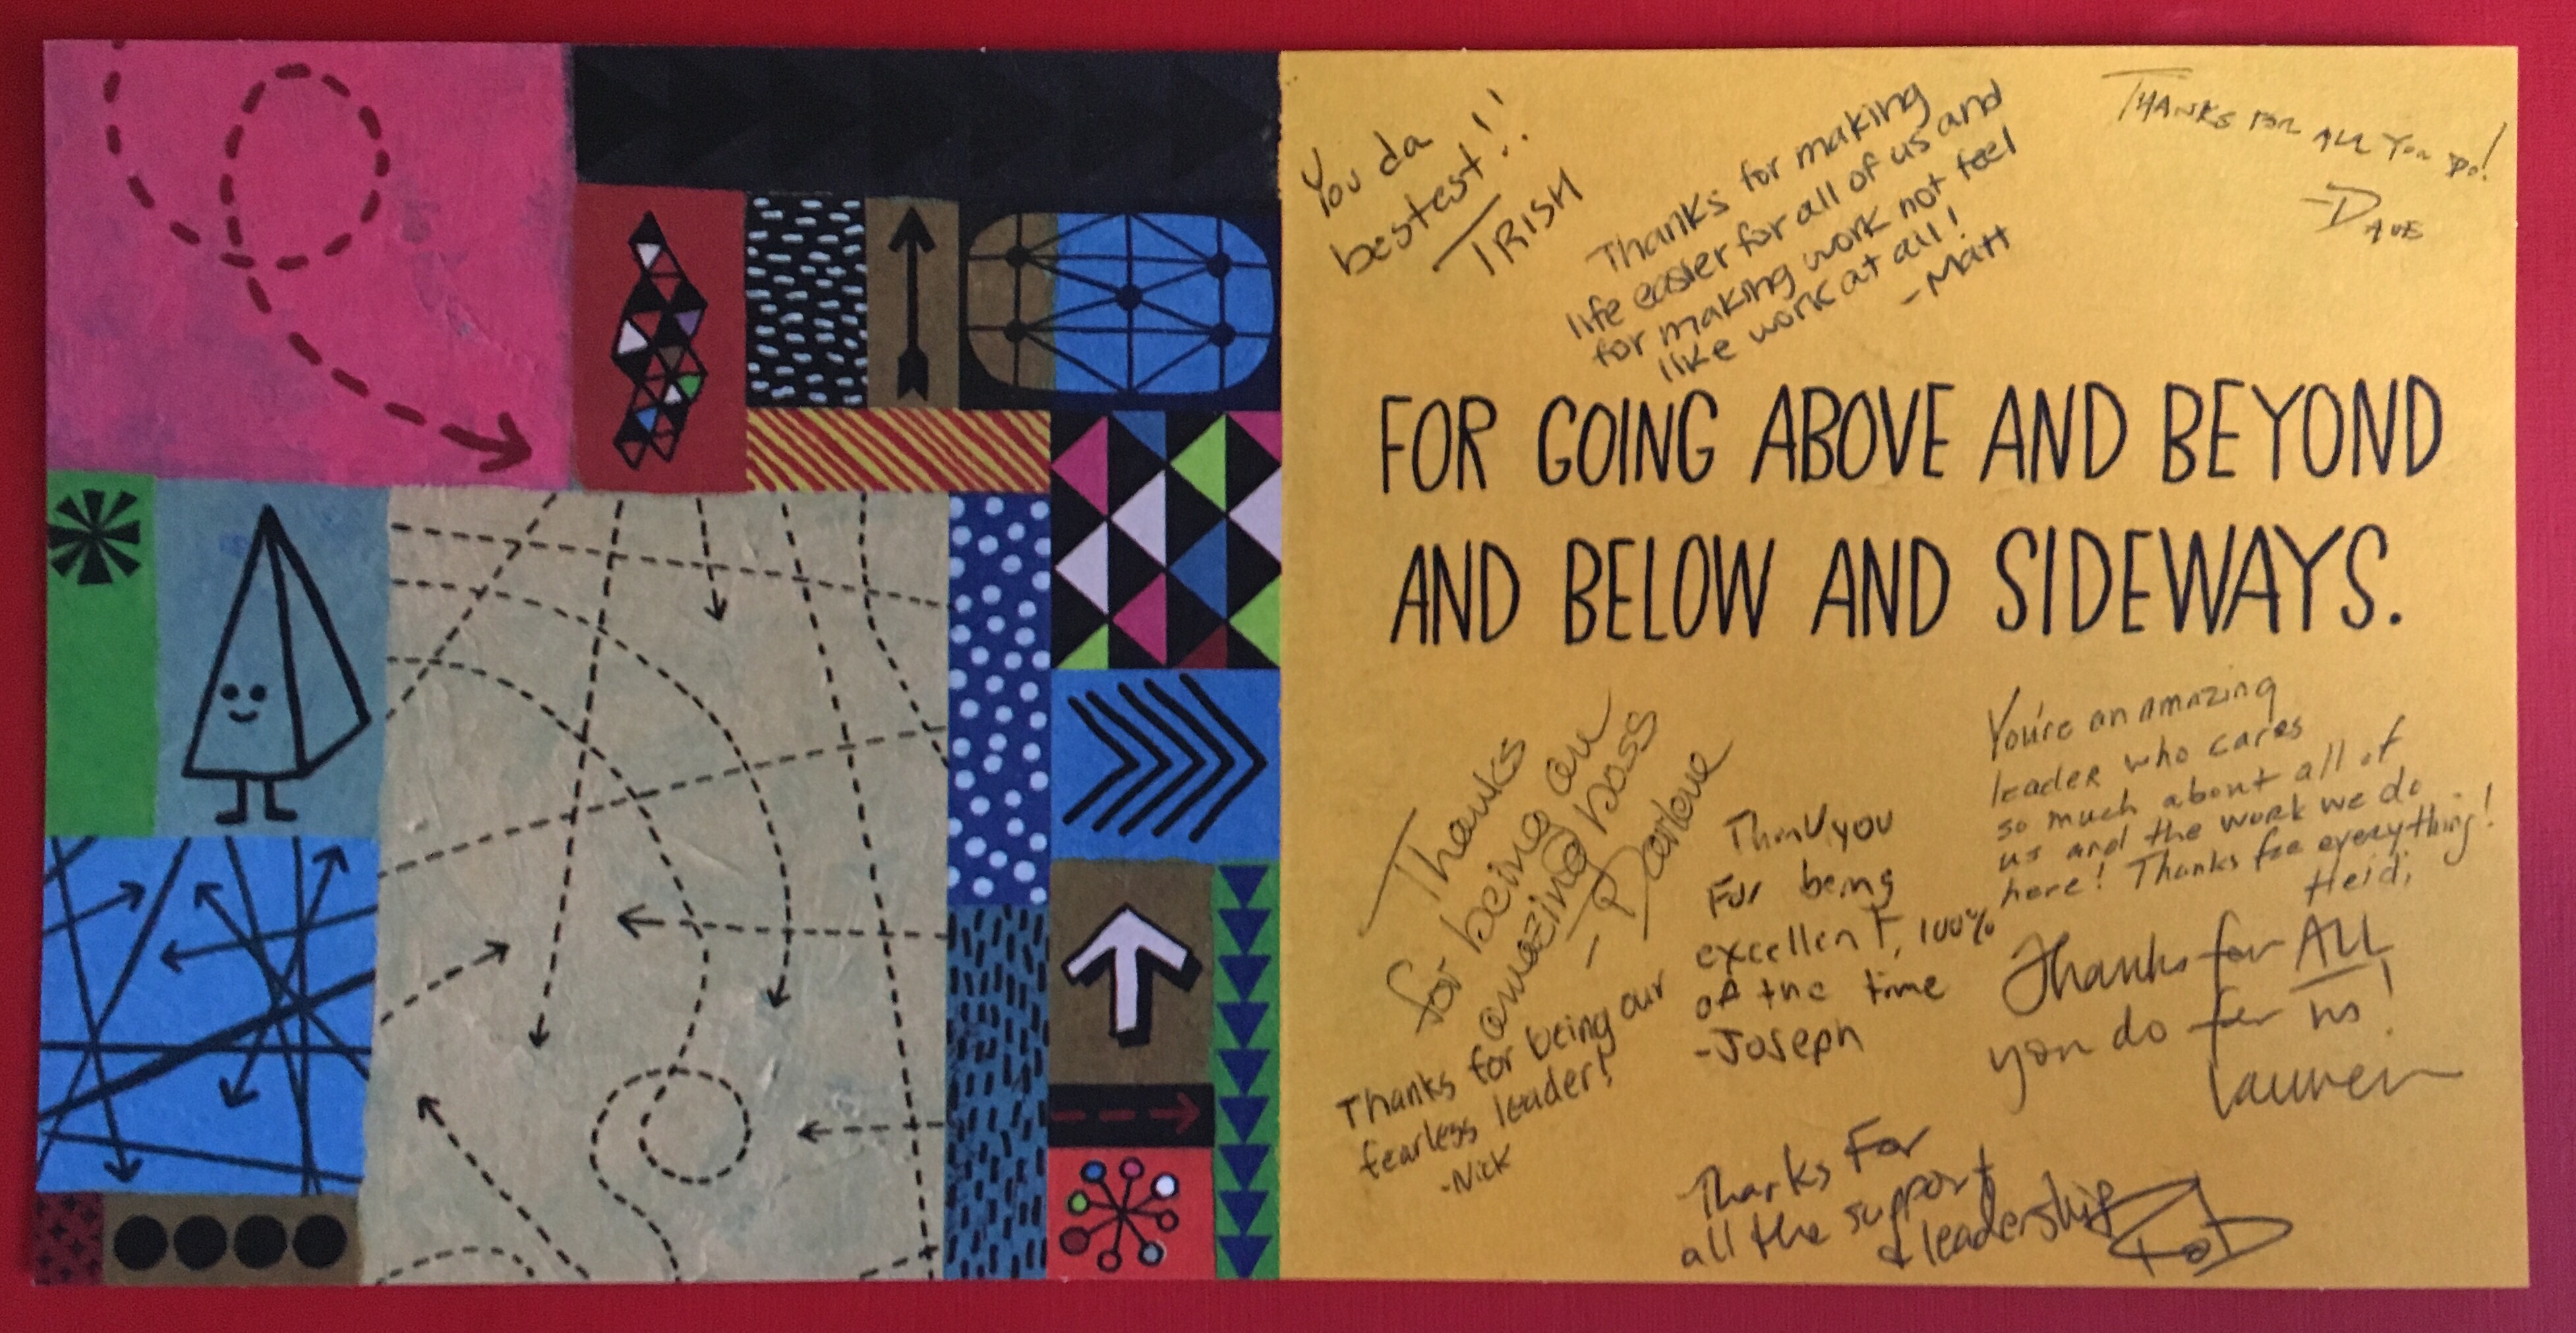 You da
bestest!!
TRISH
Thanks for making
life easier for all of us and
for making work not feel
like work at all!
-Matt
THANKS FOR ALL YOU DO!
-DAVE
FOR GOING ABOVE AND BEYOND
AND BELOW AND SIDEWAYS.
Thanks
for being an
amazing boss
- Darlene
Thanks for being our
fearless leader!
-Nick
Thank you
For being
excellent, 100%
of the time
-Joseph
You're an amazing
leader who cares
so much about all of
us and the work we do
here! Thanks for everything!
Heidi
Thanks for ALL
you do for us!
Lauren
Thanks For
all the support
& leadership